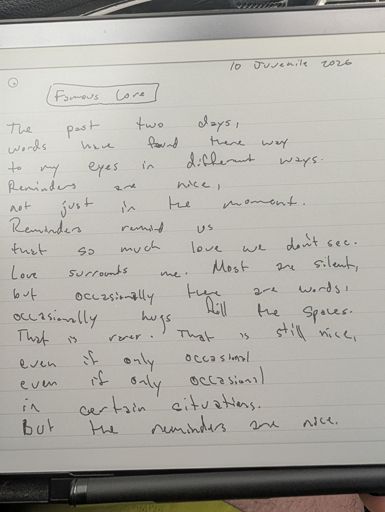 10 Juvenile 2026
Famous Love
The past two days,
words have found there way
to my eyes in different ways.
Reminders are nice,
not just in the moment.
Reminders remind us
that so much love we don't see.
Love surrounds me. Most are silent,
but occasionally there are words,
occasionally hugs fill the spaces.
That is rarer. That is still nice,
even if only occasional
even if only occasional
in certain situations.
But the reminders are nice.